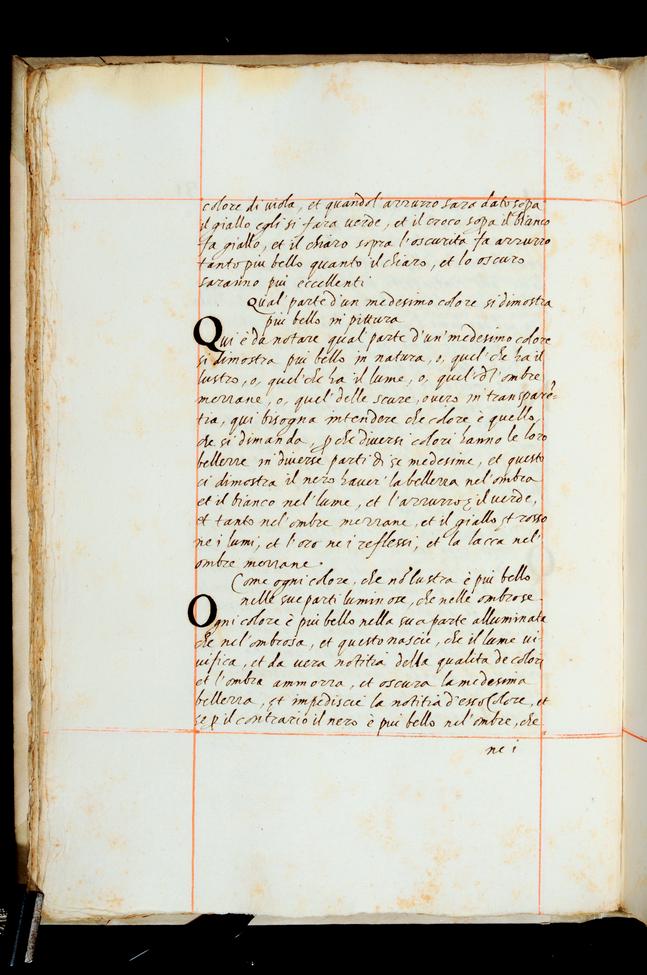 colore di viola, et quand'l azzurro sara dato sopa
il giallo egli si fara verde, et il croco sopa il bianco
fa giallo, et il chiaro sopra l'oscurità fa azzurro
tanto piu bello quanto il chiaro, et lo oscuro
saranno piu eccellenti
Qual parte d'un medesimo colore si dimostra
piu bello in pittura
Qui è da notare qual parte d'un medesimo colore
si dimostra piu bello in natura, o, quel che ha il
lustro, o, quel che ha il lume, o, quel dl'ombre
mezzane, o, quel delle scure, overo in transparē-
tia, qui bisogna intendere che colore è quello,
che si dimanda, p che diversi colori hanno le loro
bellezze in diverse parti di se medesime, et questo
ci dimostra il nero haver la bellezza nel'ombra
et il bianco nel'lume, et l'azzurro, il verde,
et tanto nel'ombre mezzane, et il giallo, et rosso
ne i lumi, et l'oro ne i reflessi, et la lacca nel'
ombre mezzane.
Come ogni colore, che nō lustra è piu bello
nelle sue parti luminose, che nelle ombrose.
Ogni colore è piu bello nella sua parte alluminata
che nel'ombrosa, et questo nascie, che il lume vi
vifica, et da vera notitia della qualita de colori
et l'ombra ammorza, et oscura la medesima
bellezza, et impediscie la notitia d'esso Colore, et
se p il contrario il nero è piu bello nel'ombre, che
ne i